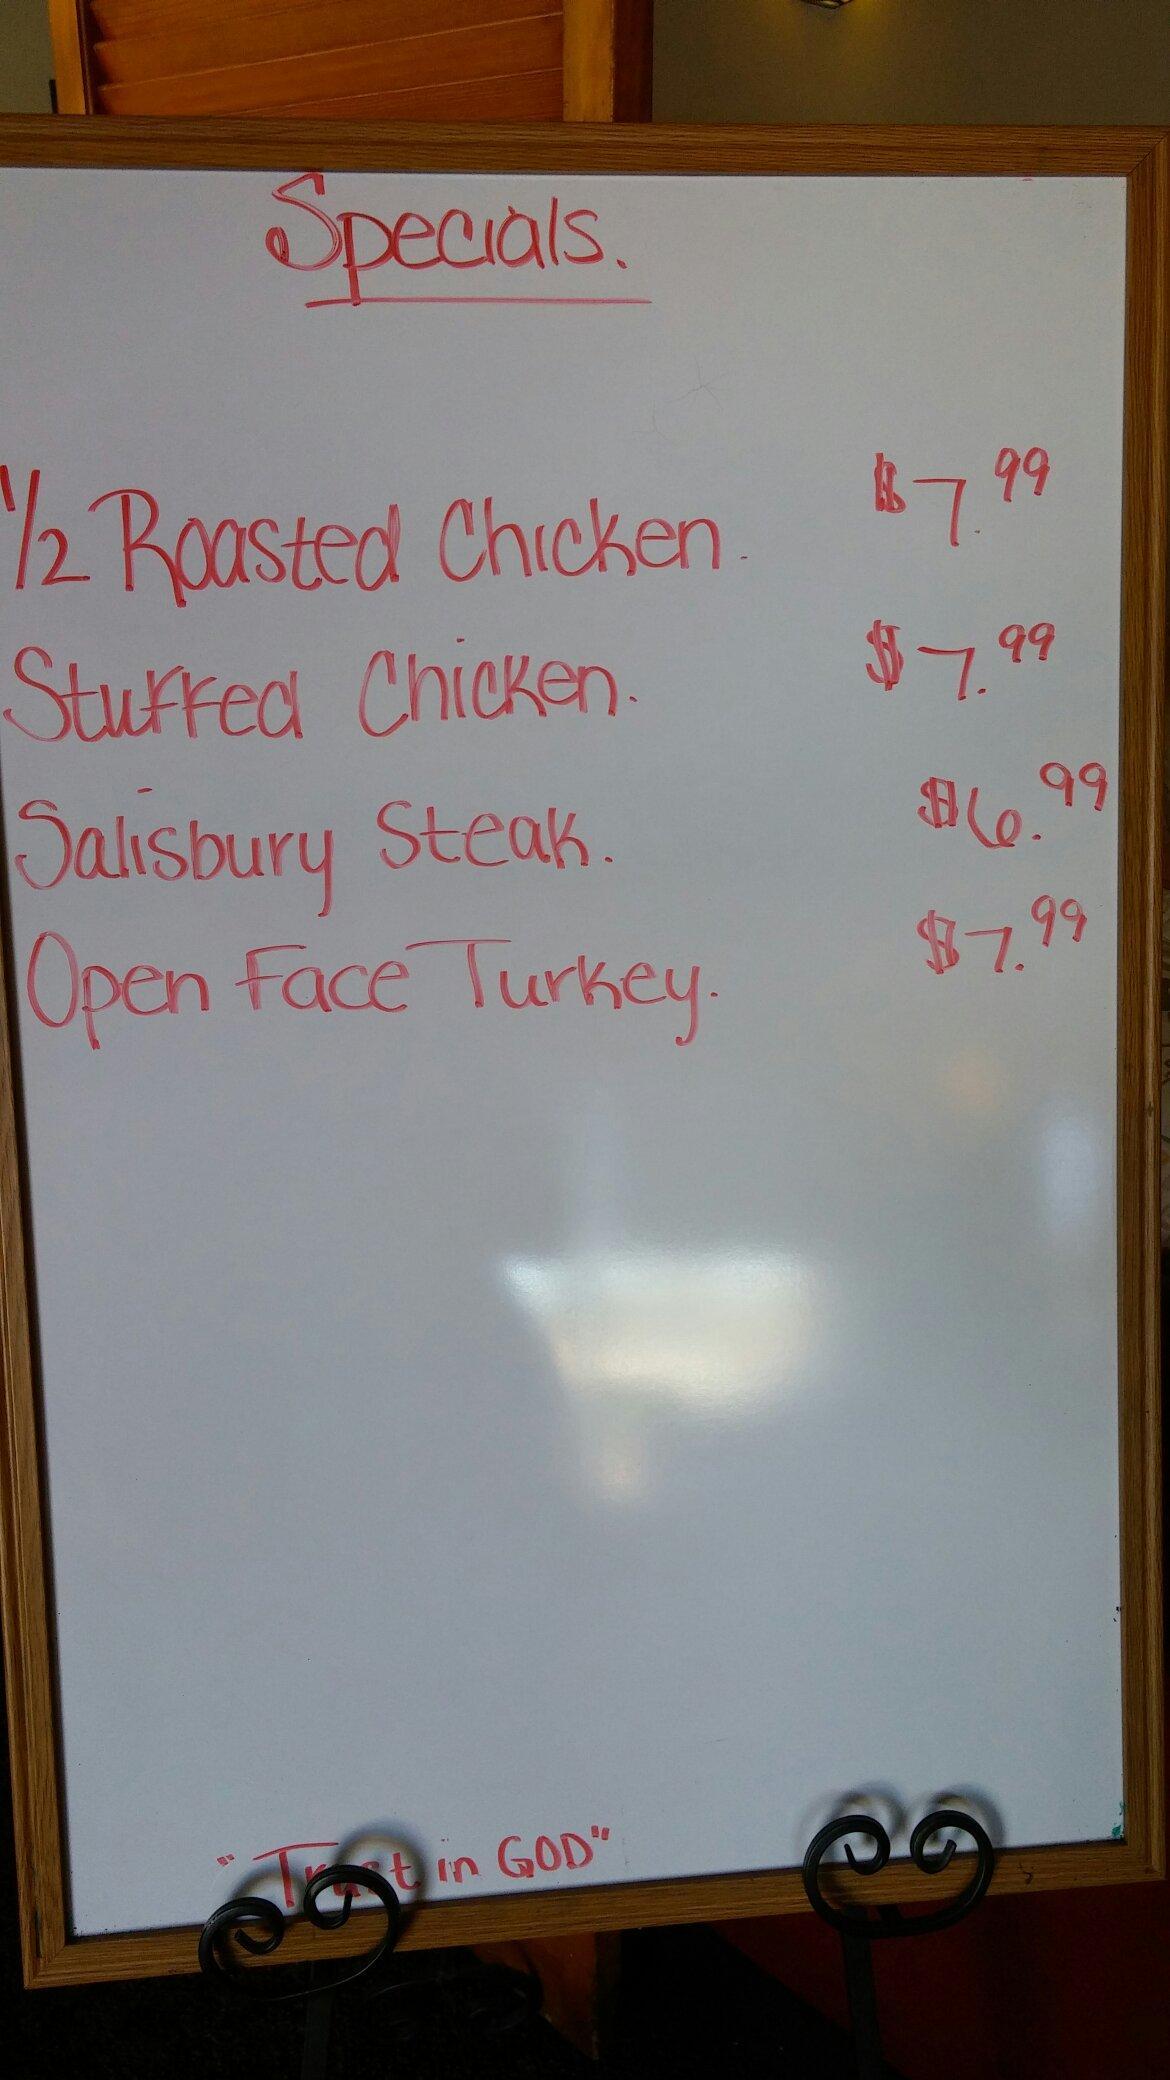 Specials.
1/2 Roasted Chicken. $7.99
Stuffed Chicken. $7.99
Salisbury Steak. $6.99
Open Face Turkey. $7.99
"Trust in GOD"